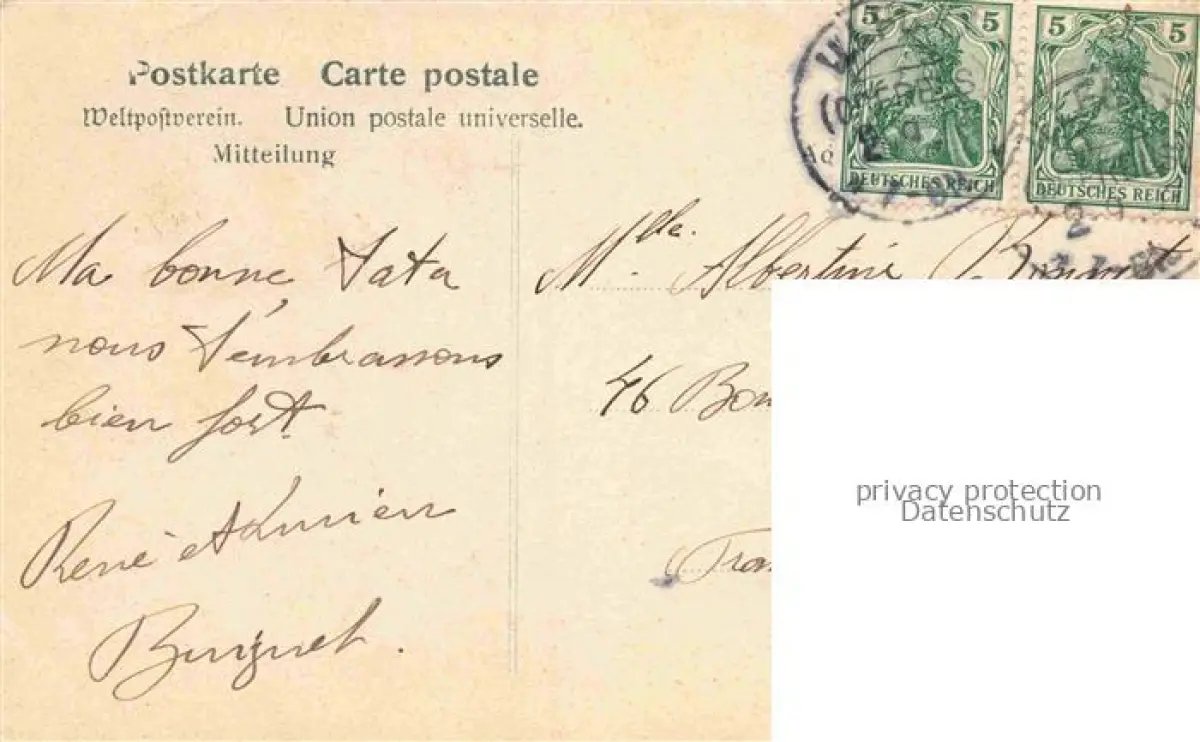 Postkarte Carte postale
Weltpostverein. Union postale universelle.
Mitteilung
5 5
DEUTSCHES REICH
5 5
DEUTSCHES REICH
Ma bonne Tata
nous t'embrassons
bien fort
René et
Mlle. Albertine
46
privacy protection
Datenschutz